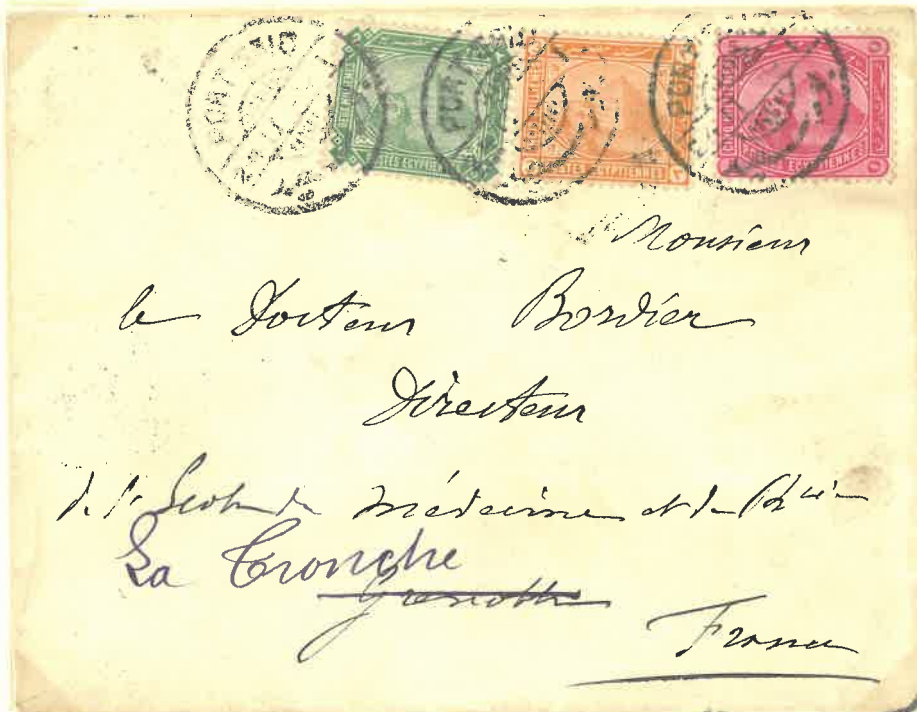 PORT SAID PORT SAID PORT SAID
POSTES EGYPTIENNES POSTES EGYPTIENNES POSTES EGYPTIENNES
Monsieur
le Docteur Bordier
Directeur
de l'Ecole de Médecine et de
La Tronche
Grenoble
France